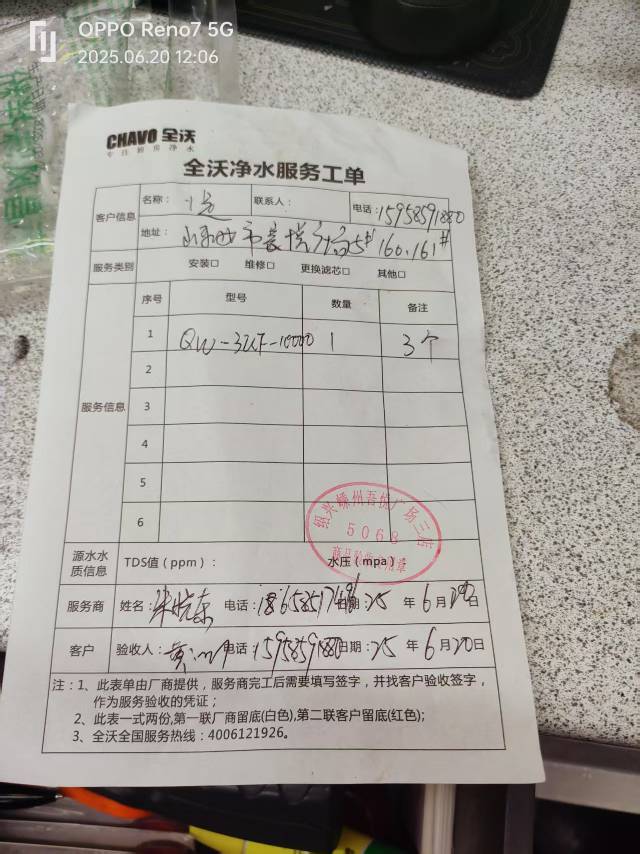 OPPO Reno7 5G
2025.06.20 12:06
CHAVO 全沃
专注厨房净水
全沃净水服务工单
客户信息
名称：
联系人：
电话：15958591880
地址： 5# 160.161#
服务类别
安装□ 维修□ 更换滤芯□ 其他□
服务信息
序号 型号 数量 备注
1 QW-3UF-10000 1 3个
2
3
4
5
6
绍兴嵊州吾悦广场三店
5068
源水水质信息
TDS值（ppm）：
水压（mpa）
服务商
姓名： 电话： 日期：25 年 6 月 20 日
客户
验收人： 电话：15958591880 日期：25 年 6 月 20 日
注：1、此表单由厂商提供，服务商完工后需要填写签字，并找客户验收签字，
作为服务验收的凭证；
2、此表一式两份,第一联厂商留底(白色),第二联客户留底(红色);
3、全沃全国服务热线：4006121926。